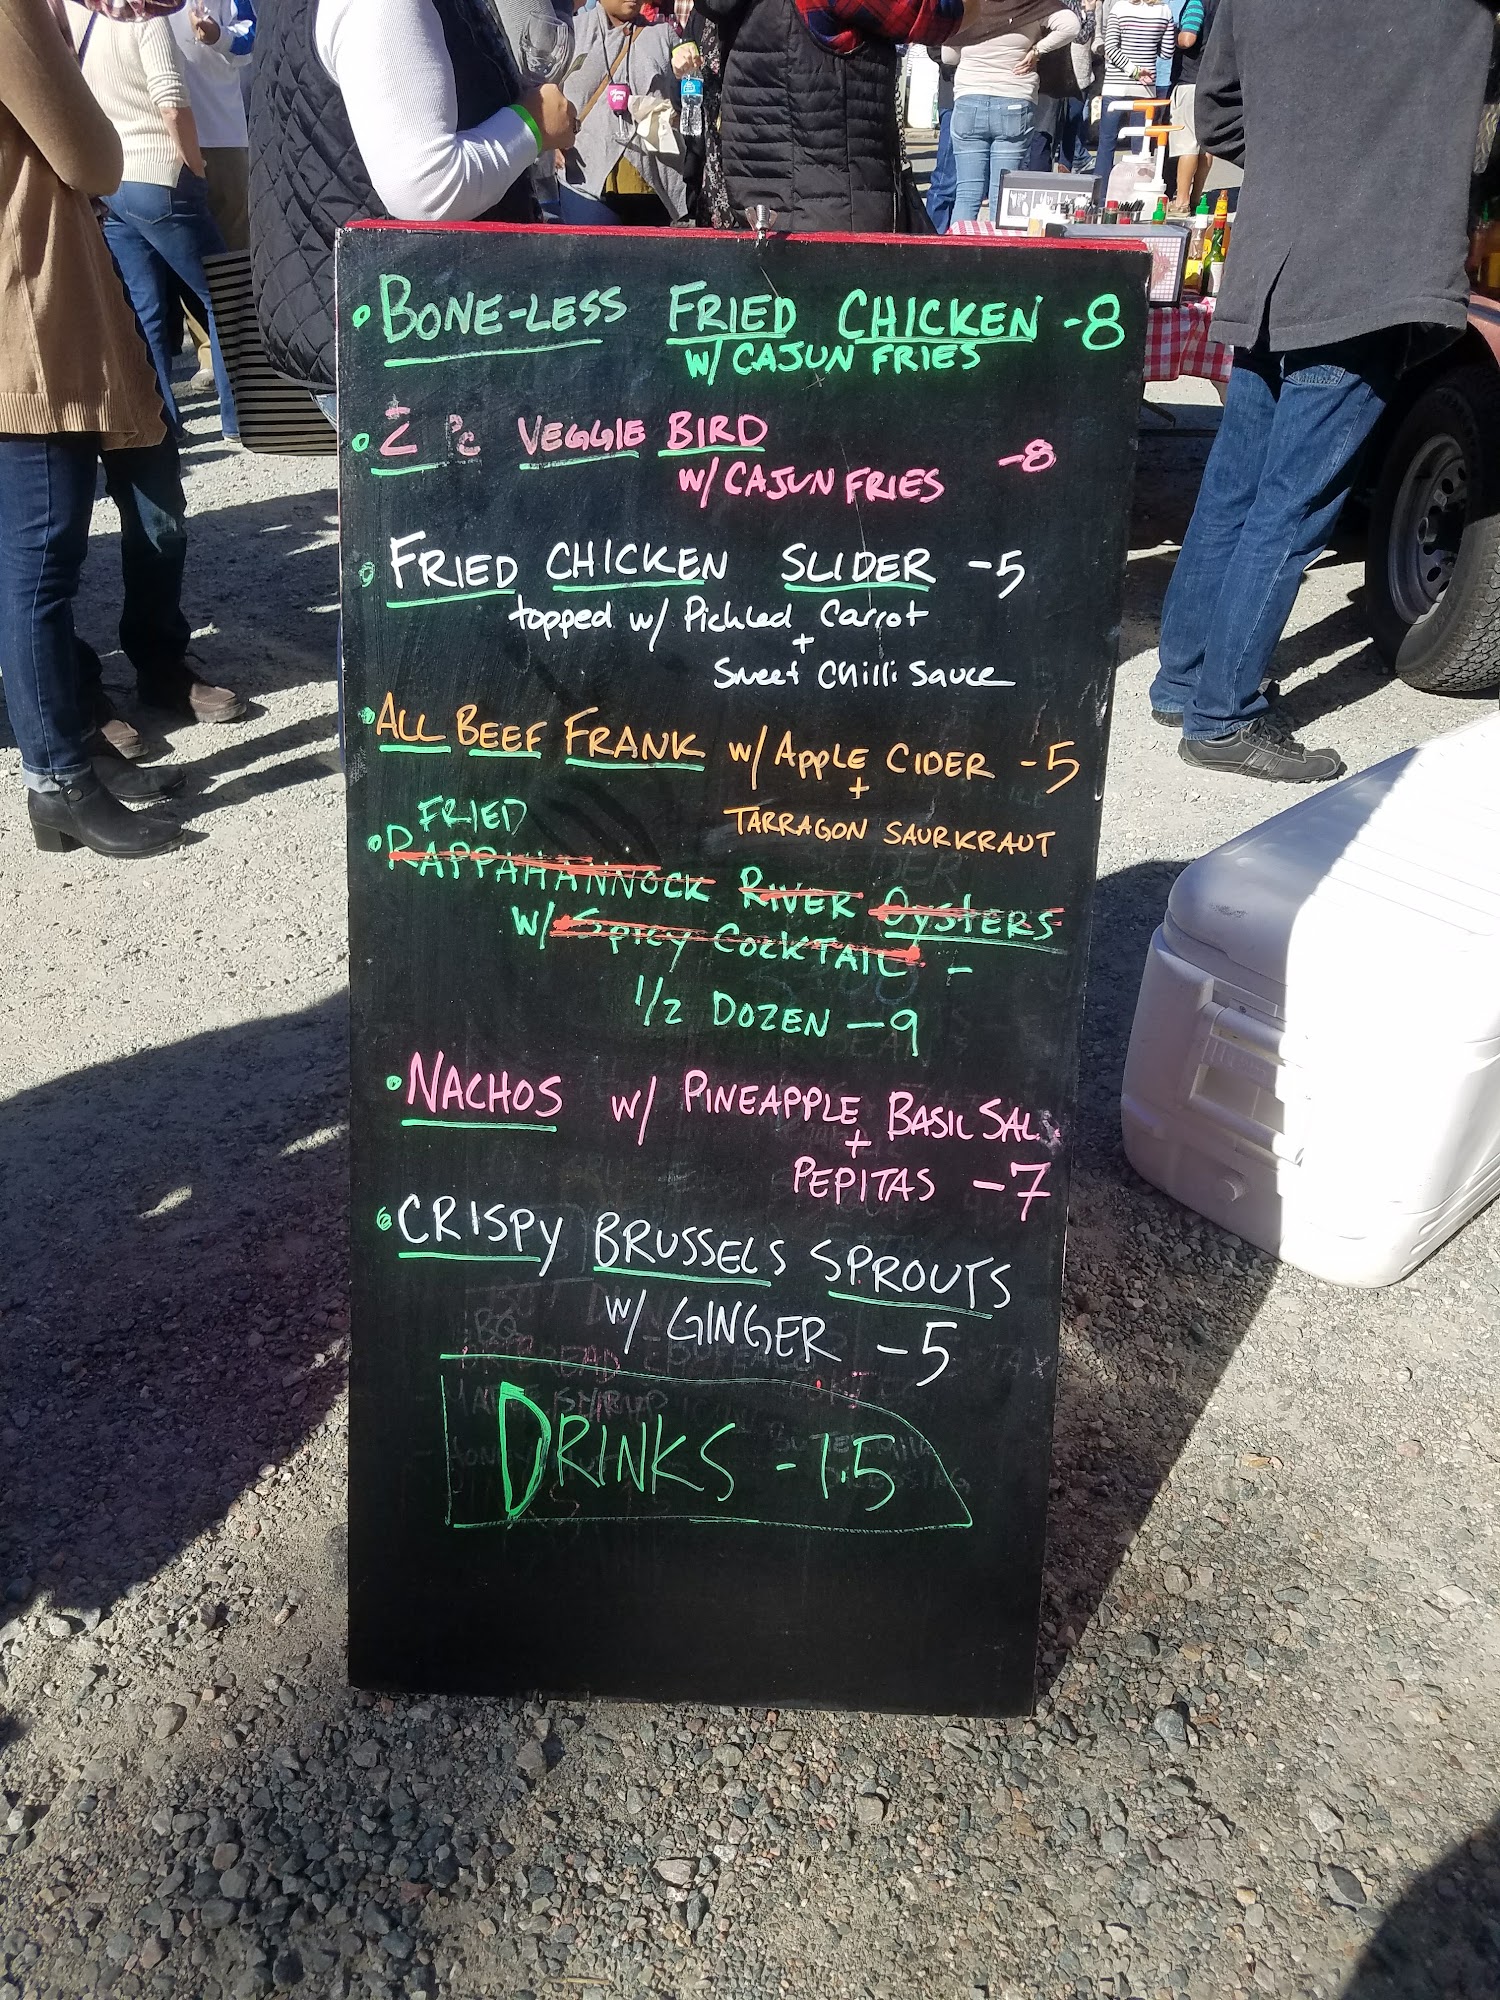 BONE-LESS FRIED CHICKEN -8
W/ CAJUN FRIES
2 Pc VEGGIE BIRD -8
W/ CAJUN FRIES
FRIED CHICKEN SLIDER -5
topped w/ Pickled Carrot
+
Sweet Chilli Sauce
ALL BEEF FRANK w/ Apple CIDER -5
+
TARRAGON SAURKRAUT
FRIED
RAPPAHANNOCK RIVER OYSTERS
W/ SPICY COCKTAIL -
1/2 DOZEN -9
NACHOS w/ PINEAPPLE BASIL SAL
+
PEPITAS -7
CRISPY BRUSSELS SPROUTS
w/ GINGER -5
DRINKS -1.5